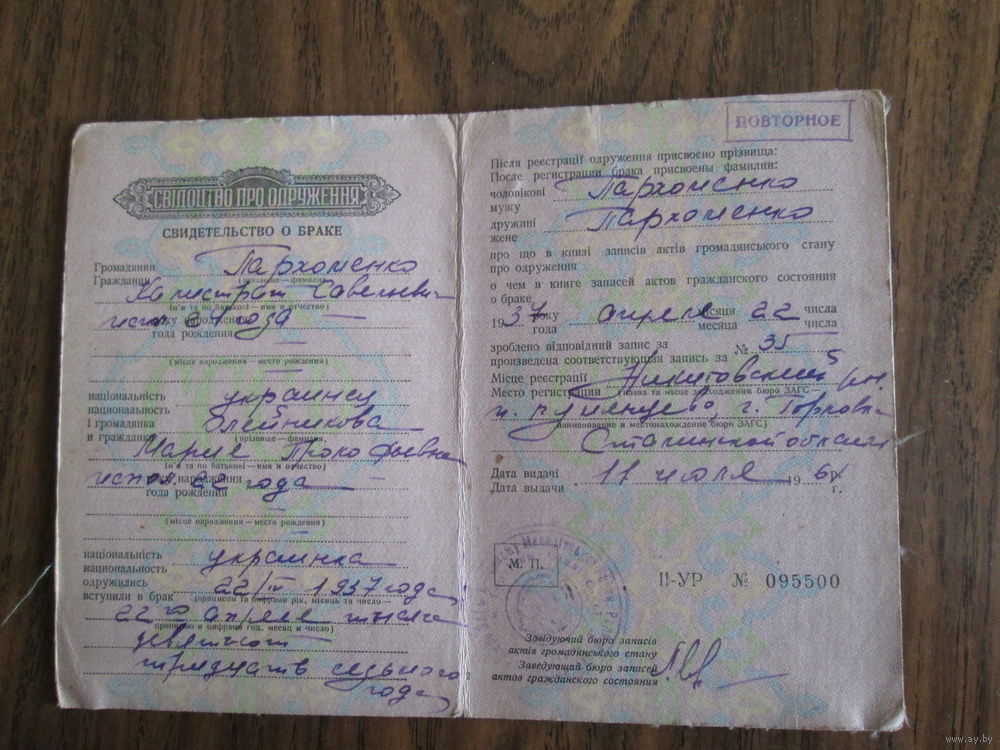 СВІДОЦТВО ПРО ОДРУЖЕННЯ
СВИДЕТЕЛЬСТВО О БРАКЕ
Громадянин Пархоменко
Гражданин
(прізвище — фамилия)
Калистрат Савельевич
(ім'я та по батькові — имя и отчество)
року народження
испол. 27 года
года рождения
(місце народження — место рождения)
національність украинец
национальность
і громадянка Олейникова
и гражданка
(прізвище — фамилия,
Мария Прокофьевна
ім'я та по батькові — имя и отчество)
року народження
испол. 22 года
года рождения
(місце народження — место рождения)
національність украинка
национальность
одружились 22/IV 1937 года,
вступили в брак
(прописом та цифрами рік, місяць та число —
22го апреля тысяча
прописью и цифрами год, месяц и число)
девятьсот
тридцать седьмого
года
ПОВТОРНОЕ
Після реєстрації одруження присвоєно прізвища:
После регистрации брака присвоены фамилии:
чоловікові Пархоменко
мужу
дружині Пархоменко
жене
про що в книзі записів актів громадянського стану
про одруження
о чем в книге записей актов гражданского состояния
о браке
1937 року апреля місяця 22 числа
года месяца числа
зроблено відповідний запис за № 35
произведена соответствующая запись за
Місце реєстрації Никитовский р-н.
Место регистрации
(назва та місце знаходження бюро ЗАГС)
г. Горловка
(наименование и местонахождение бюро ЗАГС)
Сталинской области
Дата видачі 11 июля 196 р.
Дата выдачи г.
М. П.
II-УР № 095500
Завідуючий бюро записів
актів громадянського стану
Заведующий бюро записей
актов гражданского состояния
www.ay.by